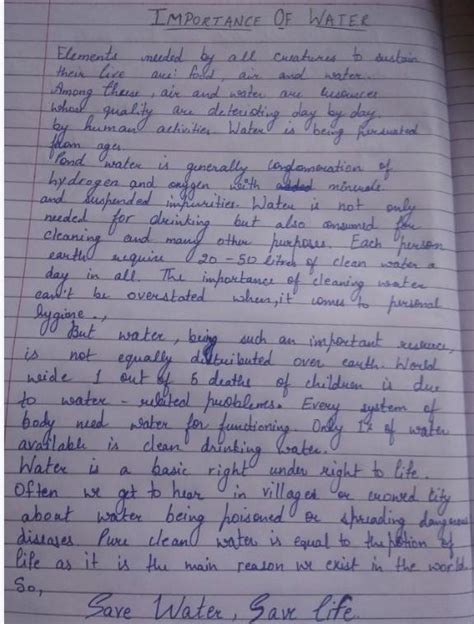 IMPORTANCE OF WATER
Elements needed by all creatures to sustain
their live are: food, air and water.
Among these, air and water are resources
whose quality are deterioting day by day
by human activities. Water is being persuated
from ages.
Pond water is generally conglomeration of
hydrogen and oxygen with added minerals
and suspended impurities. Water is not only
needed for drinking but also consumed for
cleaning and many other purposes. Each person
earth require 20-50 litres of clean water a
day in all. The importance of cleaning water
can't be overstated when, it comes to personal
hygine.,
But water, being such an important resource,
is not equally distributed over earth. World
weide 1 out of 5 deaths of children is due
to water-related problems. Every system of
body need water for functioning. Only 1% of water
available is clean drinking water.
Water is a basic right under right to life.
Often we get to hear in villages or crowed city
about water being poisoned or spreading dangerous
diseases. Pure clean water is equal to the potion of
life as it is the main reason we exist in the world.
So,
Save Water, Save life.